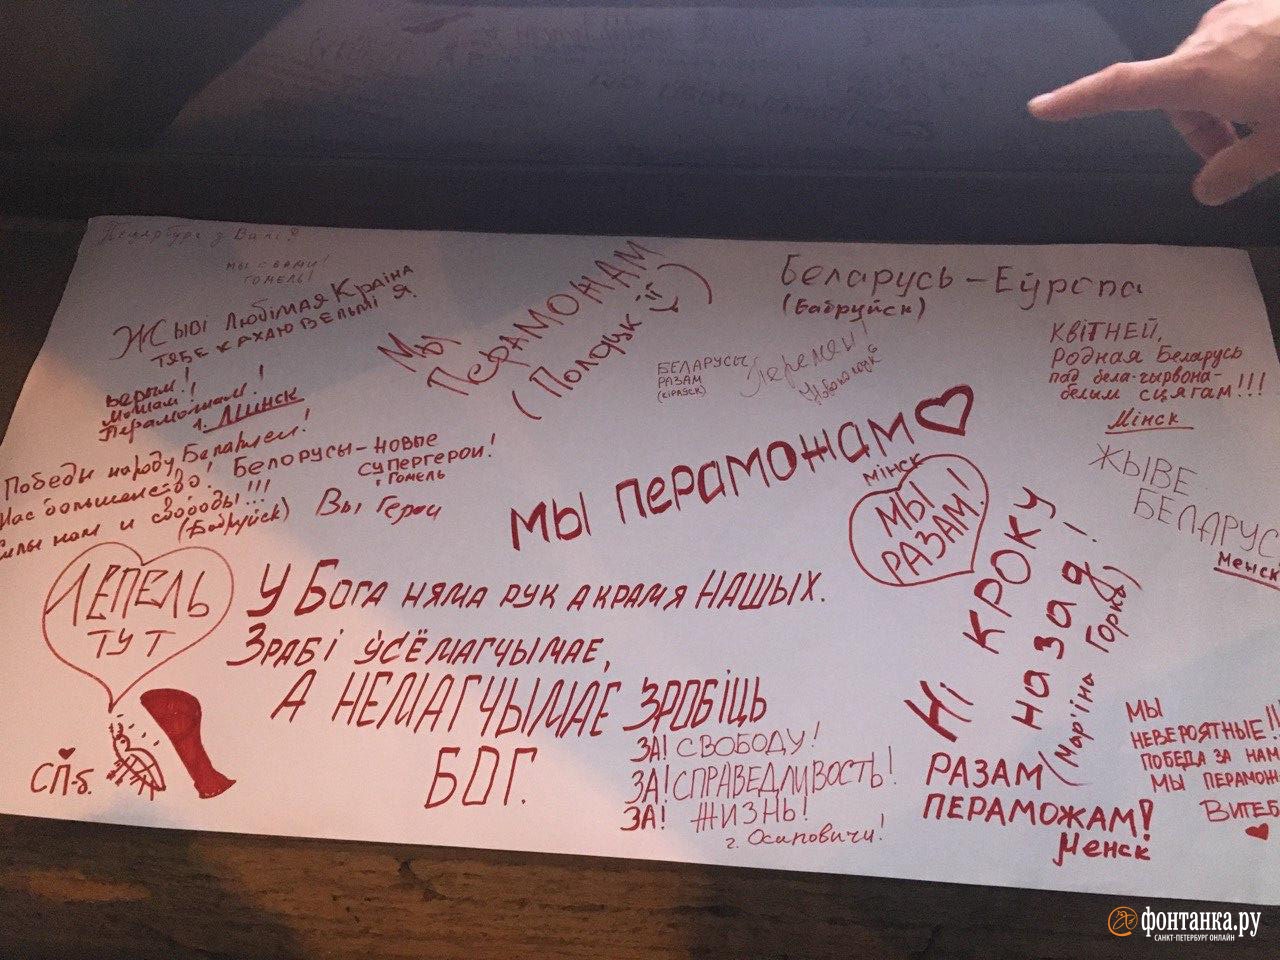 Пецярбург з Вамі Я
МЫ С ВАМИ!
ГОМЕЛЬ!
ЖЫВІ ЛЮБІМАЯ КРАІНА
ТЯБЕ КАХАЮ ВЕЛЬМІ Я.
Верым!
Можам!
Пераможам!
г. Минск
Победы народу Беларусі!
Нас большинство!
Силы нам и свободы!!!
(Бабруйск)
БЕЛОРУСЫ – НОВЫЕ
СУПЕРГЕРОИ!
г. ГОМЕЛЬ
Вы Герои
МЫ
ПЕРАМОЖАМ
(Полоцк)
БЕЛАРУСЫ
РАЗАМ
Перемен!
Беларусь – Еўропа
(Бабруйск)
КВІТНЕЙ,
РОДНАЯ БЕЛАРУСЬ
пад бела-чырвона-
белым сцягам!!!
Мінск
МЫ ПЕРАМОЖАМ
МІНСК
МЫ
РАЗАМ!
ЖЫВЕ
БЕЛАРУС
Менск
НІ
КРОКУ
НАЗАД!
(Мар'іна Горка)
ЛЕПЕЛЬ
ТУТ
СП-б.
У БОГА НЯМА РУК АКРАМЯ НАШЫХ.
ЗРАБІ ЎСЁ МАГЧЫМАЕ,
А НЕМАГЧЫМАЕ ЗРОБІЦЬ
БОГ.
ЗА! СВОБОДУ!
ЗА! СПРАВЕДЛИВОСТЬ!
ЗА! ЖИЗНЬ!
г. Осиповичи!
РАЗАМ
ПЕРАМОЖАМ!
Менск
МЫ
НЕВЕРОЯТНЫЕ!!
ПОБЕДА ЗА НАМ
МЫ ПЕРАМОЖ
ВИТЕБ
фонтанка.ру
САНКТ-ПЕТЕРБУРГ ОНЛАЙН